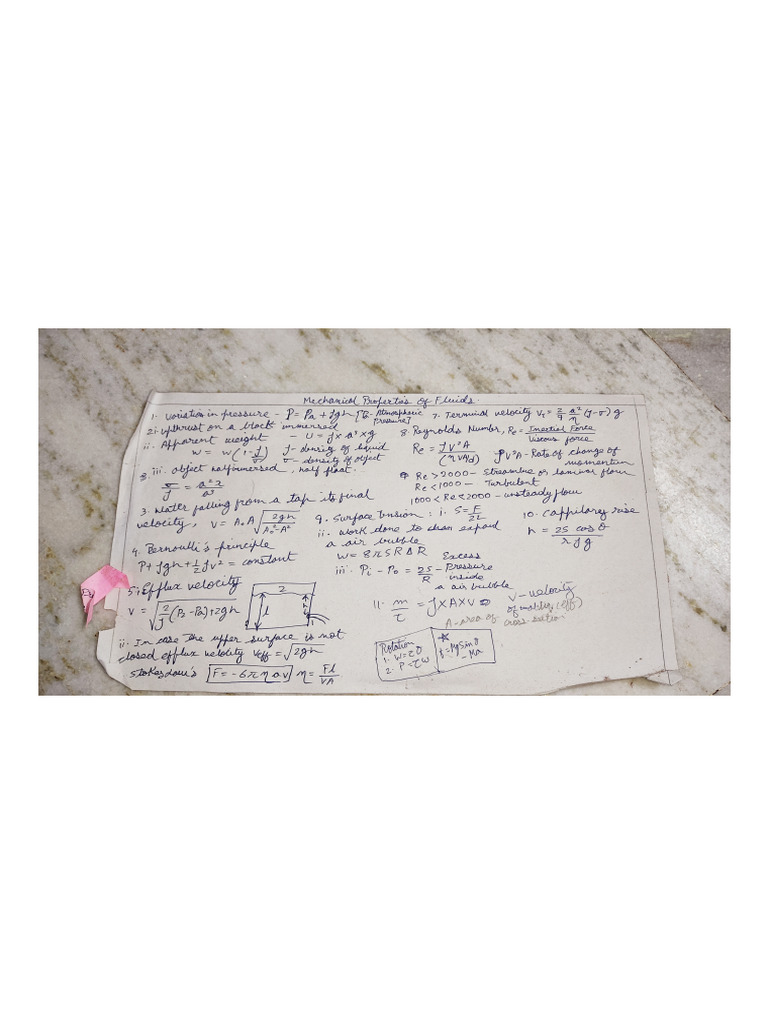 Mechanical Properties of Fluids.
1. Variation in pressure - P = Pa + ρgh [Pa - Atmospheric Pressure]
2. i. upthrust on a block immersed
- U = ρ × a³ × g
ii. Apparent weight
W = w(1 - ρ/σ)
ρ - density of liquid
σ - density of object
iii. object half immersed, half float.
σ/ρ = a²x/a³
3. Water falling from a tap its final
velocity, V = A₀A √(2gh/(A₀² - A²))
4. Bernoulli's principle
P + ρgh + ½ρv² = constant
5. i. Efflux velocity
V = √(2/ρ (P₂ - Pa) + 2gh)
2
l
h
1
ii. In case the upper surface is not
closed efflux velocity Veff = √2gh
Stokes law's [F = -6πηav] η = Fl/VA
7. Terminal velocity Vt = 2/9 a²/η (ρ - σ)g
8. Reynolds Number, Re = Inertial Force/Viscous force
Re = ρV²A/(ηVA/d)
ρV²A - Rate of change of
momentum
Re > 2000 - Streamline or laminar flow
Re < 1000 - Turbulent
1000 < Re < 2000 - unsteady flow
9. Surface tension : i. S = F/2L
ii. work done to expand
a air bubble
W = 8πSRΔR
iii. Pi - Po = 2S/R - Excess
Pressure
inside
a air bubble
10. Cappilary rise
h = 2S cos θ/rρg
11. m/t = ρ × A × V
V - velocity
of (eff)
A - area of
cross-section
Rotation
1. W = τθ
2. P = τω
f = Mg Sin θ
- Ma